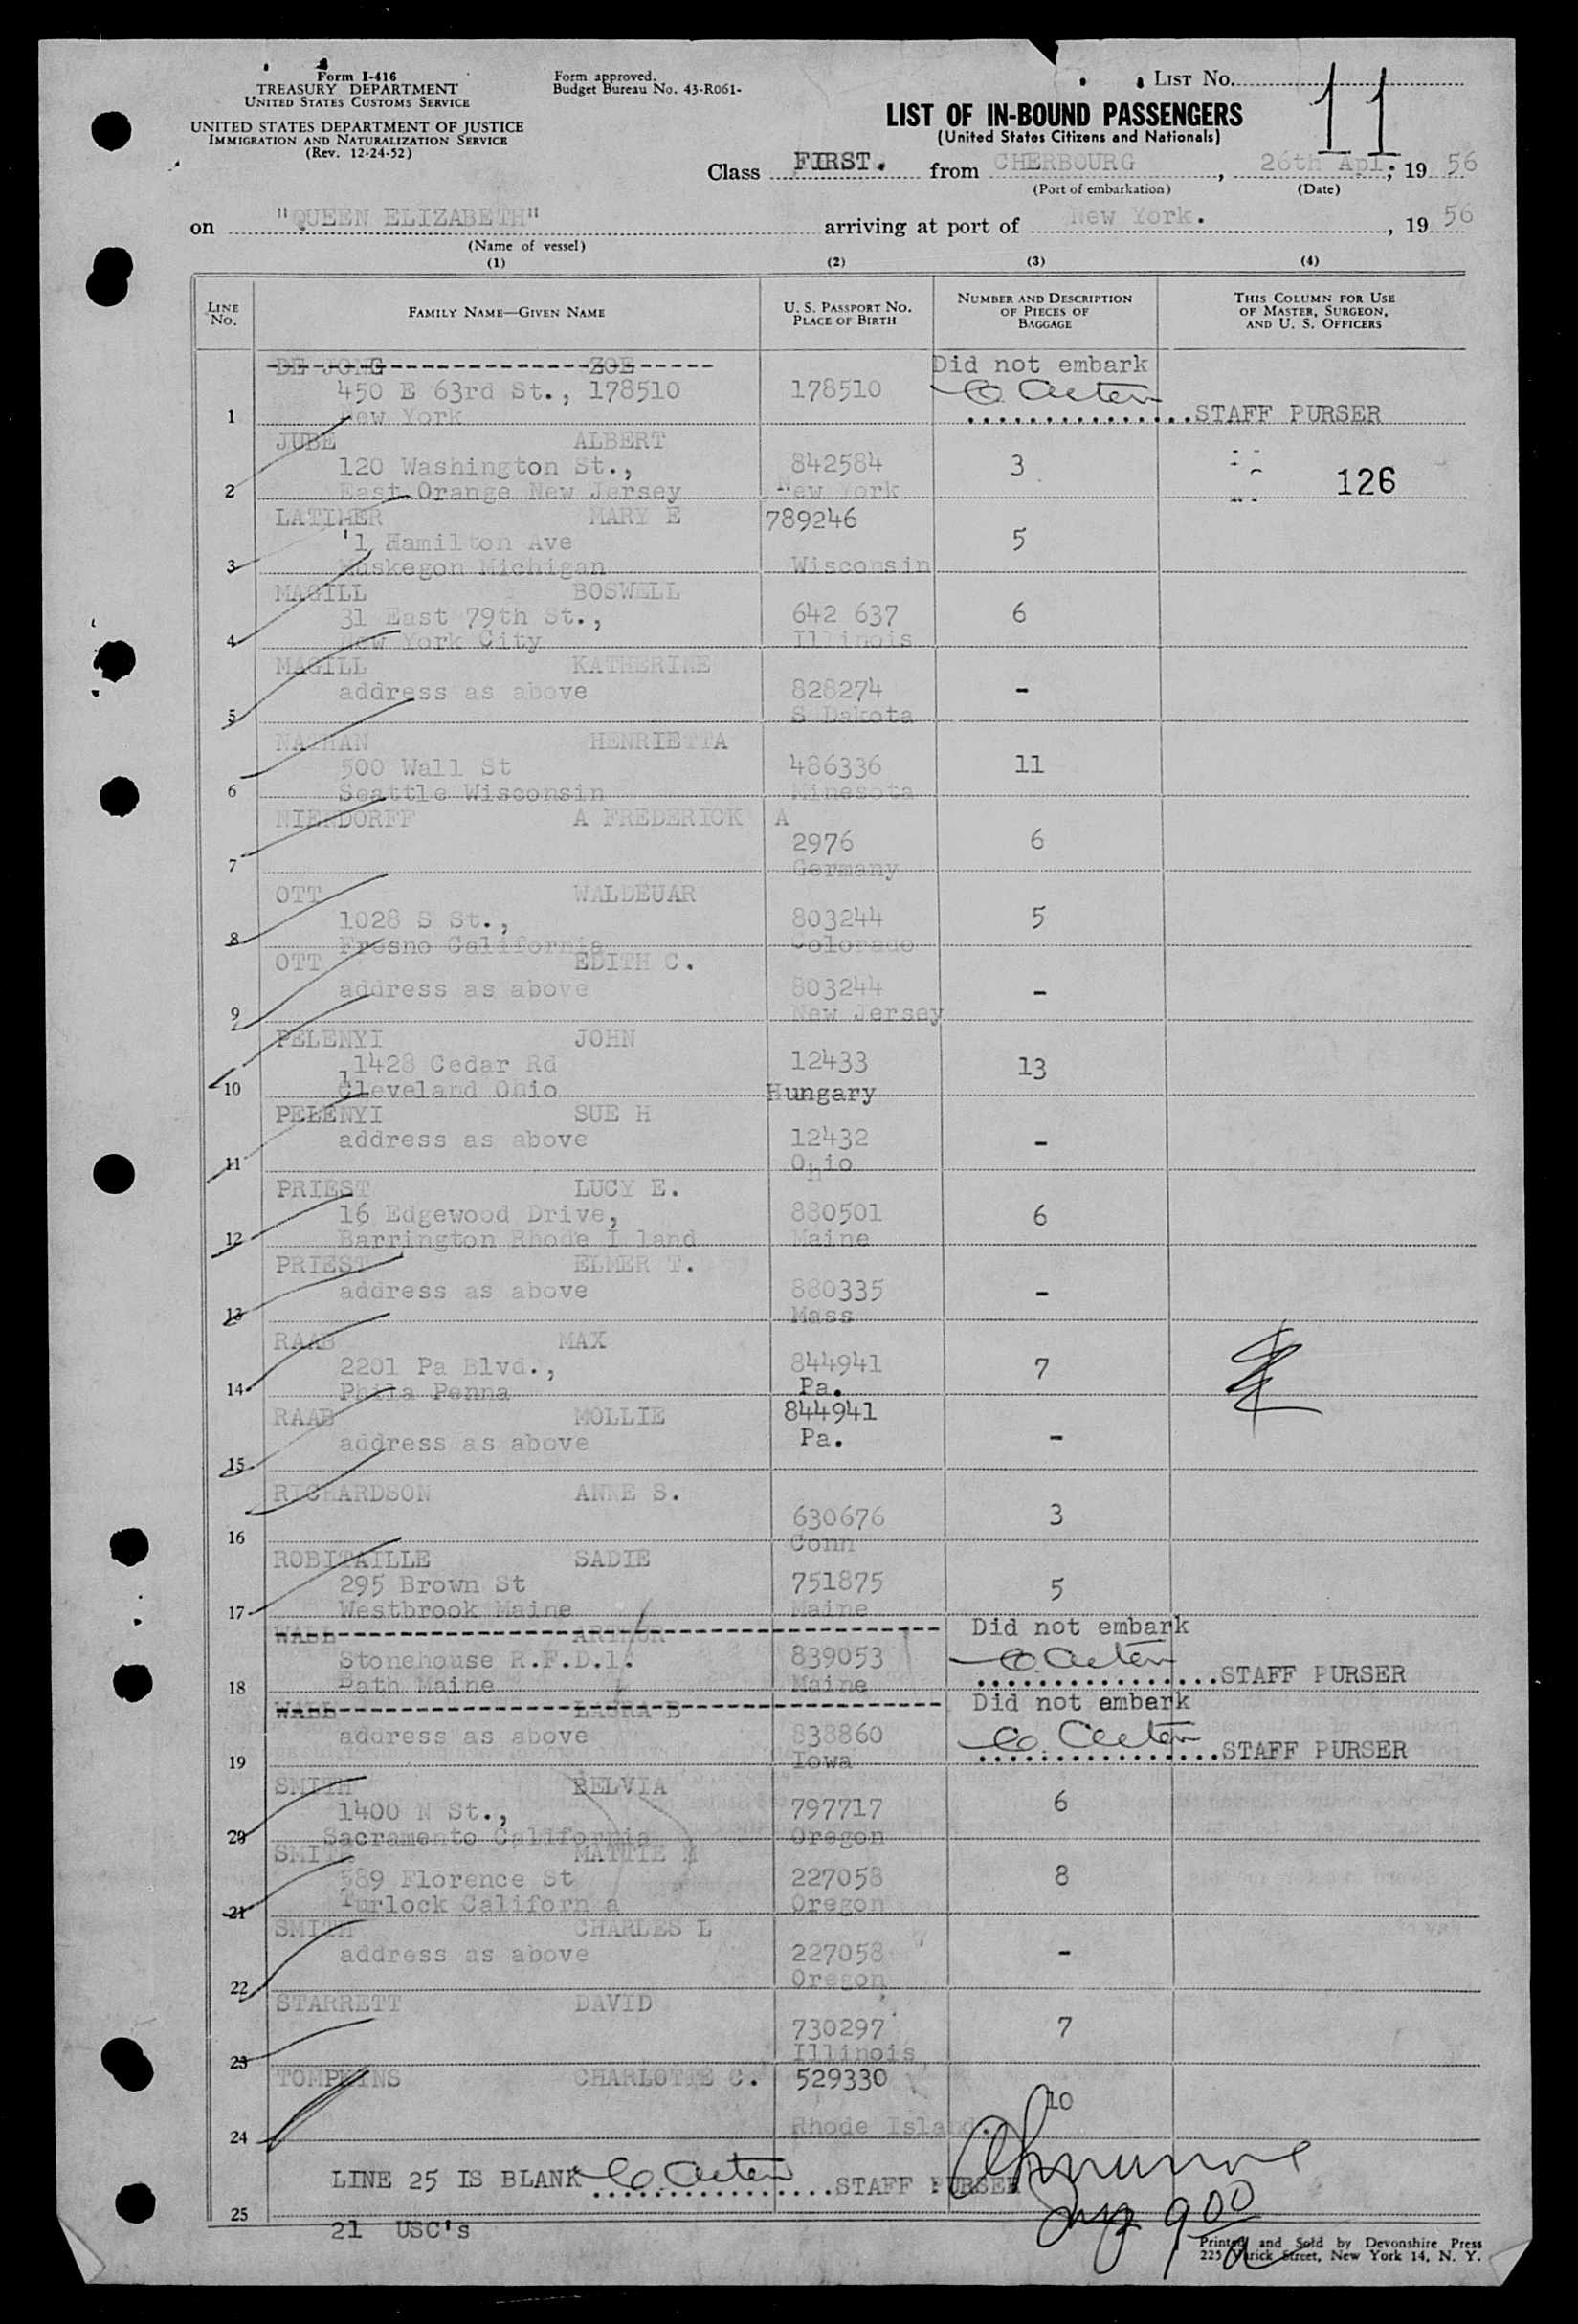 Form I-416
TREASURY DEPARTMENT
UNITED STATES CUSTOMS SERVICE
UNITED STATES DEPARTMENT OF JUSTICE
IMMIGRATION AND NATURALIZATION SERVICE
(Rev. 12-24-52)
Form approved.
Budget Bureau No. 43-R061-
LIST NO. 11
LIST OF IN-BOUND PASSENGERS
(United States Citizens and Nationals)
Class FIRST. from CHERBOURG, 26th Apl; 19 56
(Port of embarkation) (Date)
on "QUEEN ELIZABETH" arriving at port of New York. , 19 56
(Name of vessel)
(1) (2) (3) (4)
LINE NO.
FAMILY NAME—GIVEN NAME
U. S. PASSPORT NO.
PLACE OF BIRTH
NUMBER AND DESCRIPTION
OF PIECES OF
BAGGAGE
THIS COLUMN FOR USE
OF MASTER, SURGEON,
AND U. S. OFFICERS
DE JONG ZOE Did not embark
450 E 63rd St., 178510 178510
1 New York STAFF PURSER
JUBE ALBERT
120 Washington St., 842584 3
2 East Orange New Jersey New York 126
LATIMER MARY E 789246
1 Hamilton Ave 5
3 Muskegon Michigan Wisconsin
MAGILL BOSWELL
31 East 79th St., 642 637 6
4 New York City Illinois
MAGILL KATHERINE
address as above 828274 -
5 S Dakota
NATHAN HENRIETTA
500 Wall St 486336 11
6 Seattle Wisconsin Minesota
NIERDORFF A FREDERICK A
2976 6
7 Germany
OTT WALDEUAR
1028 S St., 803244 5
8 Fresno California Colorado
OTT EDITH C.
address as above 803244 -
9 New Jersey
PELENYI JOHN
1428 Cedar Rd 12433 13
10 Cleveland Ohio Hungary
PELENYI SUE H
address as above 12432 -
11 Ohio
PRIEST LUCY E.
16 Edgewood Drive, 880501 6
12 Barrington Rhode I land Maine
PRIEST ELMER T.
address as above 880335 -
13 Mass
RAAB MAX
2201 Pa Blvd., 844941 7
14 Phila Penna Pa.
RAAB MOLLIE 844941
address as above Pa. -
15
RICHARDSON ANNE S.
630676 3
16 Conn
ROBITAILLE SADIE
295 Brown St 751875 5
17 Westbrook Maine Maine
WALL ARTHUR Did not embark
Stonehouse R.F.D.1. 839053
18 Bath Maine Maine STAFF PURSER
WALL LAURA B Did not embark
address as above 838860
19 Iowa STAFF PURSER
SMITH BELVIA
1400 N St., 797717 6
20 Sacramento California Oregon
SMITH MATTIE M
589 Florence St 227058 8
21 Turlock Californ a Oregon
SMITH CHARLES L
address as above 227058 -
22 Oregon
STARRETT DAVID
730297 7
23 Illinois
TOMPKINS CHARLOTTE C. 529330
10
24 Rhode Island.
LINE 25 IS BLANK STAFF PURSER
25
21 USC's
900
Printed and Sold by Devonshire Press
225 Varick Street, New York 14, N. Y.